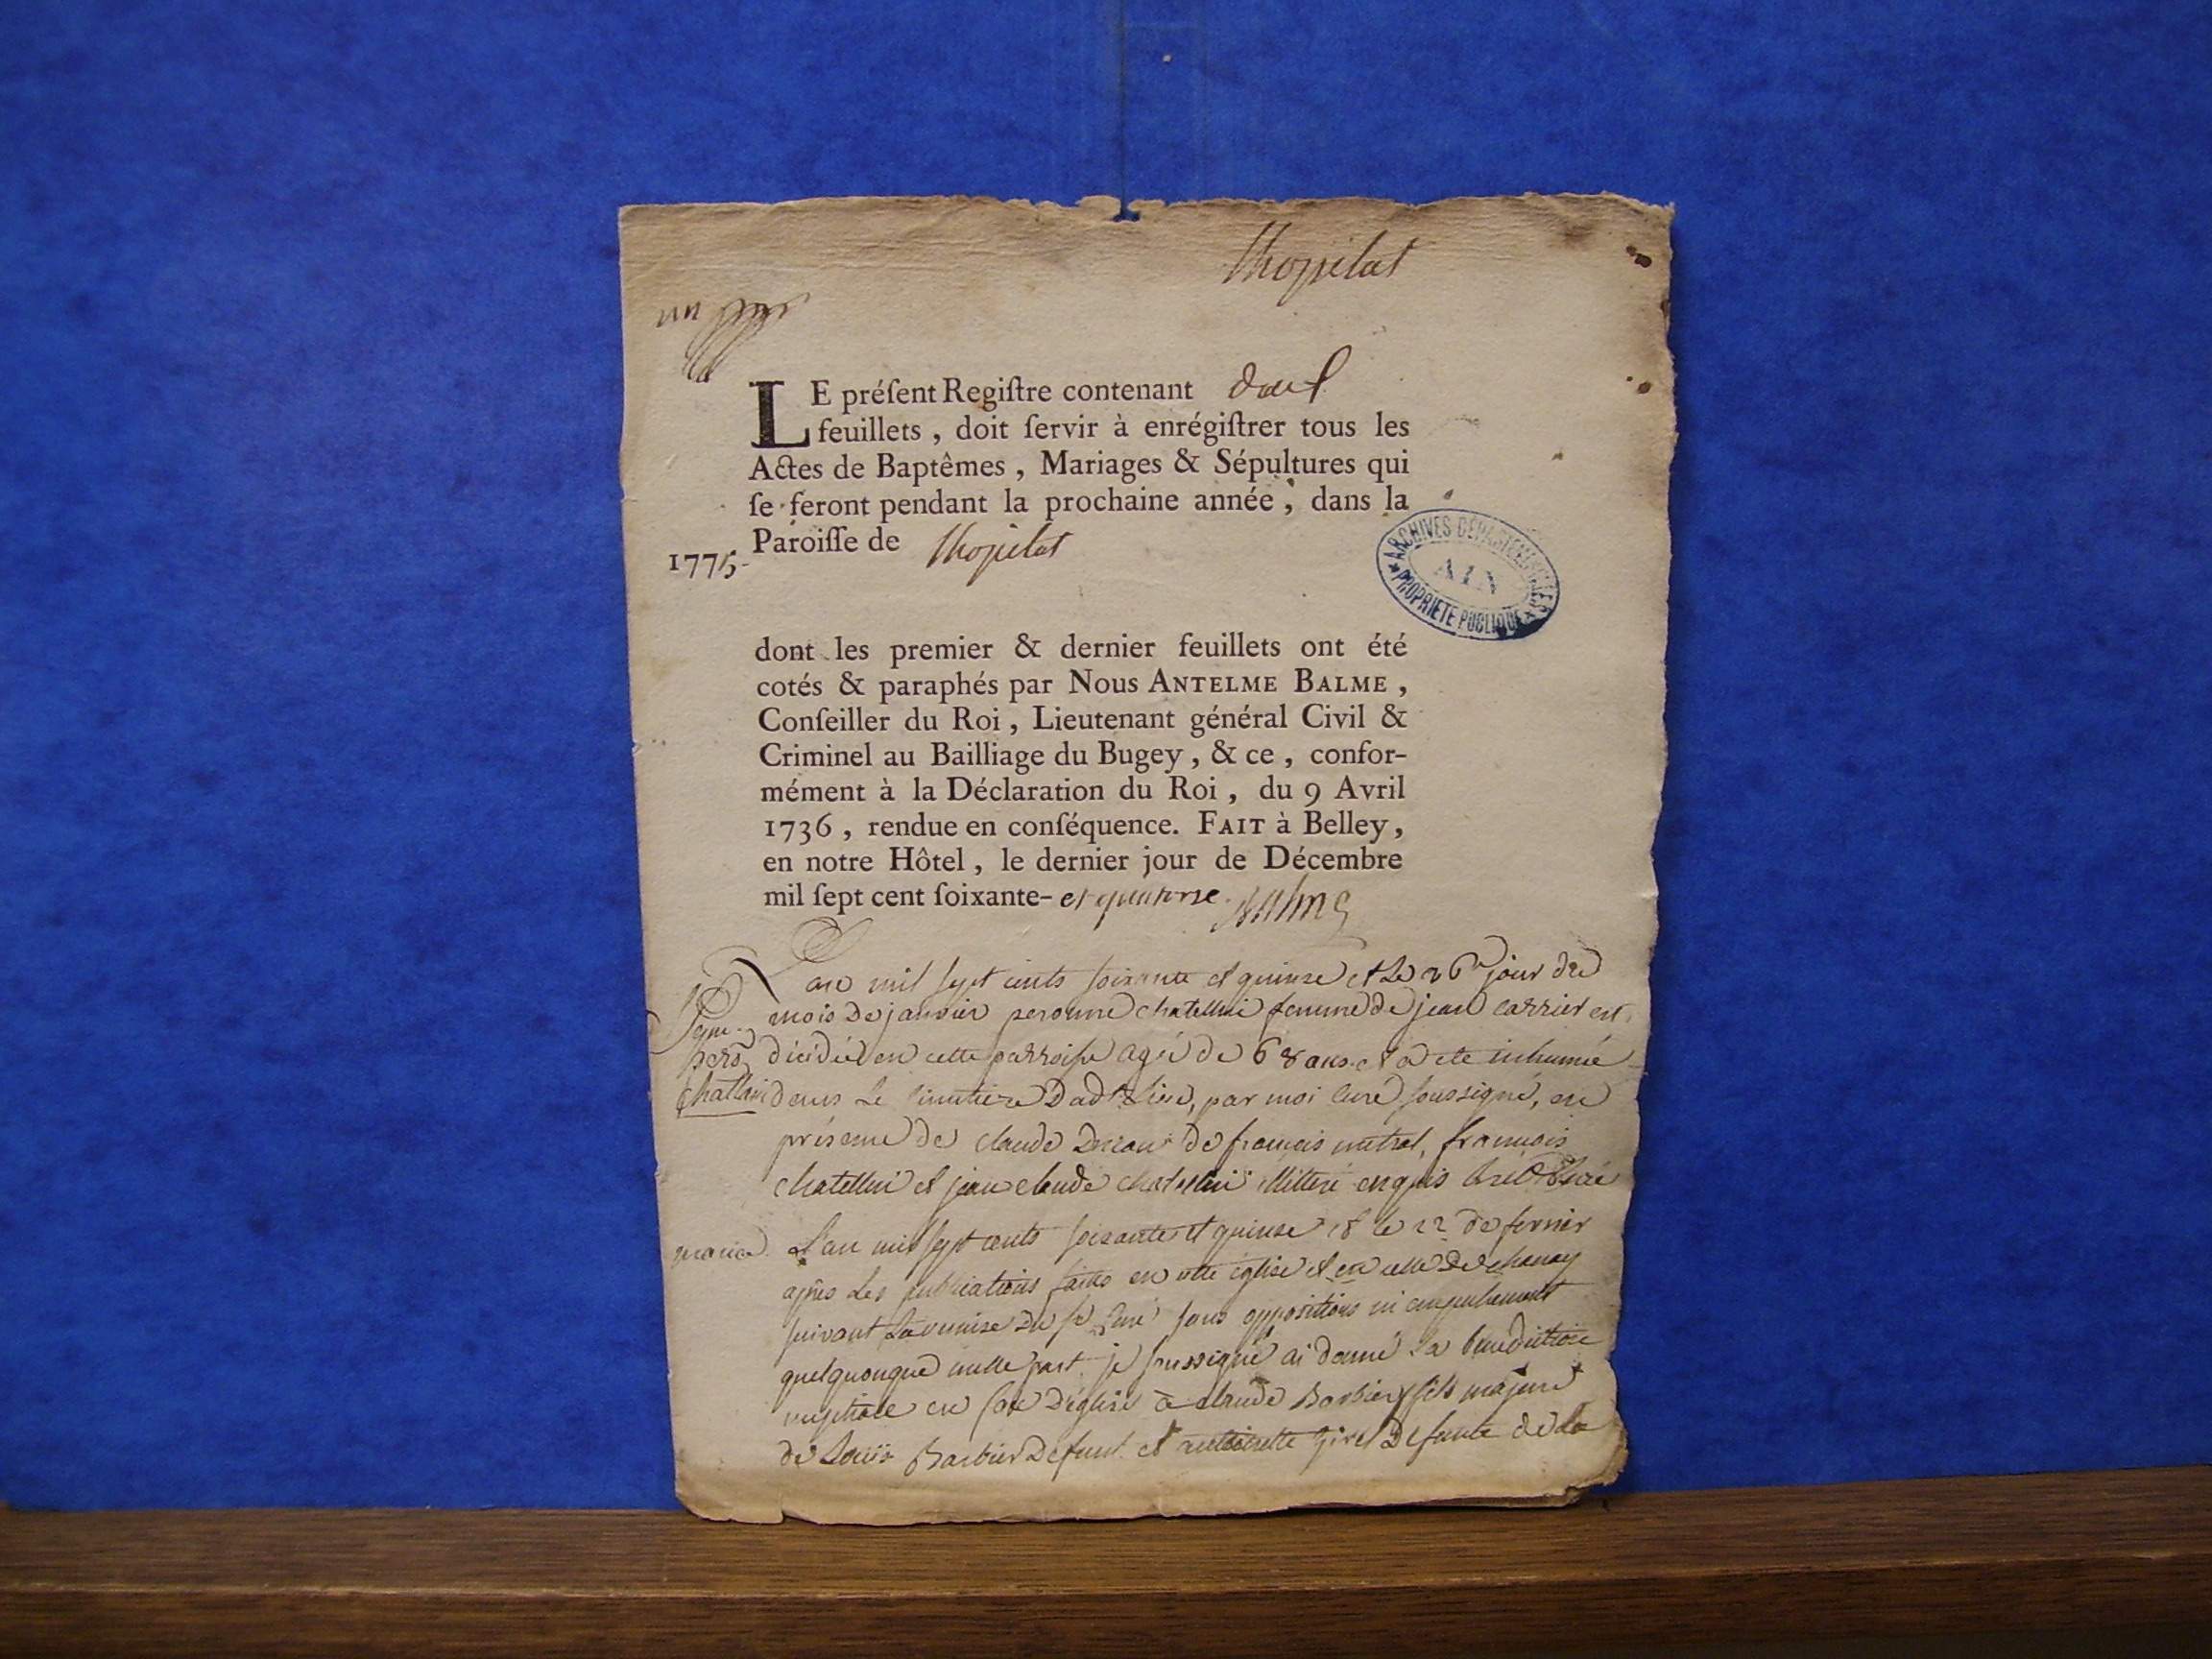 lhopital
un
LE préſent Regiſtre contenant deux
feuillets, doit ſervir à enrégiſtrer tous les
Actes de Baptêmes, Mariages & Sépultures qui
ſe feront pendant la prochaine année, dans la
Paroiſſe de lhopital
1775
ARCHIVES DÉPARTEMENTALES
AIN
PROPRIÉTÉ PUBLIQUE
dont les premier & dernier feuillets ont été
cotés & paraphés par Nous ANTELME BALME,
Conſeiller du Roi, Lieutenant général Civil &
Criminel au Bailliage du Bugey, & ce, confor-
mément à la Déclaration du Roi, du 9 Avril
1736, rendue en conſéquence. FAIT à Belley,
en notre Hôtel, le dernier jour de Décembre
mil ſept cent ſoixante- et quatorze Balme
L'an mil sept cents soixante et quinze et le 26e jour du
mois de janvier peronne chatellui femme de jean carrier est
décidée en cette parroisse agée de 68 ans et a ete inhumée
dans le Lieu, par moi curé soussigné, en
présence de claude de francois mitral, francois
chatellui et jean claude chatellui illiteré enquis
mariage L'an mil sept cents soixante et quinze et le 22 de fevrier
après les publications faites en cette église et en celle de chanay
suivant la remise du sr curé sans oppositions ni empechements
quelquonque nulle part je soussigné ai donné la benediction
nuptiale en face d'eglise à claude Barbier fils majeur
de Louis Barbier defunt et antoinette defunte de la